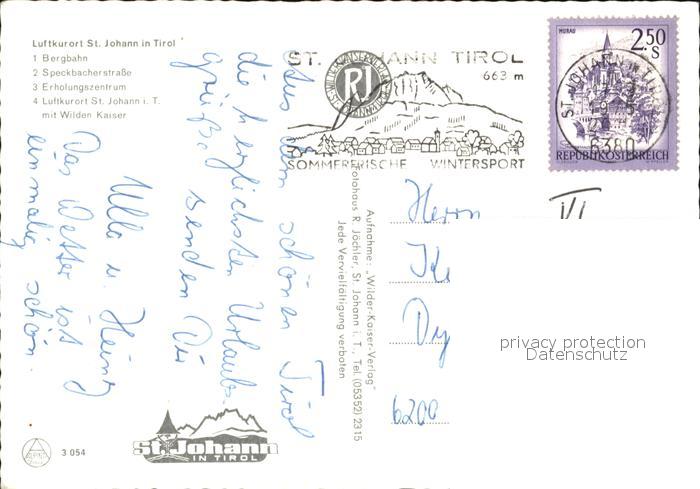 Luftkurort St. Johann in Tirol
1 Bergbahn
2 Speckbacherstraße
3 Erholungszentrum
4 Luftkurort St. Johann i. T.
mit Wilden Kaiser
Aus dem schönen Tirol
die herzlichsten Urlaubs-
grüße senden Dir
Ulla u. Heinz
Das Wetter ist
einmalig schön.
ST. JOHANN TIROL
663 m
SOMMERFRISCHE WINTERSPORT
MURAU
2.50
S
REPUBLIK ÖSTERREICH
ST. JOHANN IN TIROL
6380
Aufnahme: „Wilder-Kaiser-Verlag"
Fotohaus R. Jöchler, St. Johann i. T., Tel. (05352) 2315
Jede Vervielfältigung verboten
Herrn
VI
6200
privacy protection
Datenschutz
3 054
St. Johann
IN TIROL